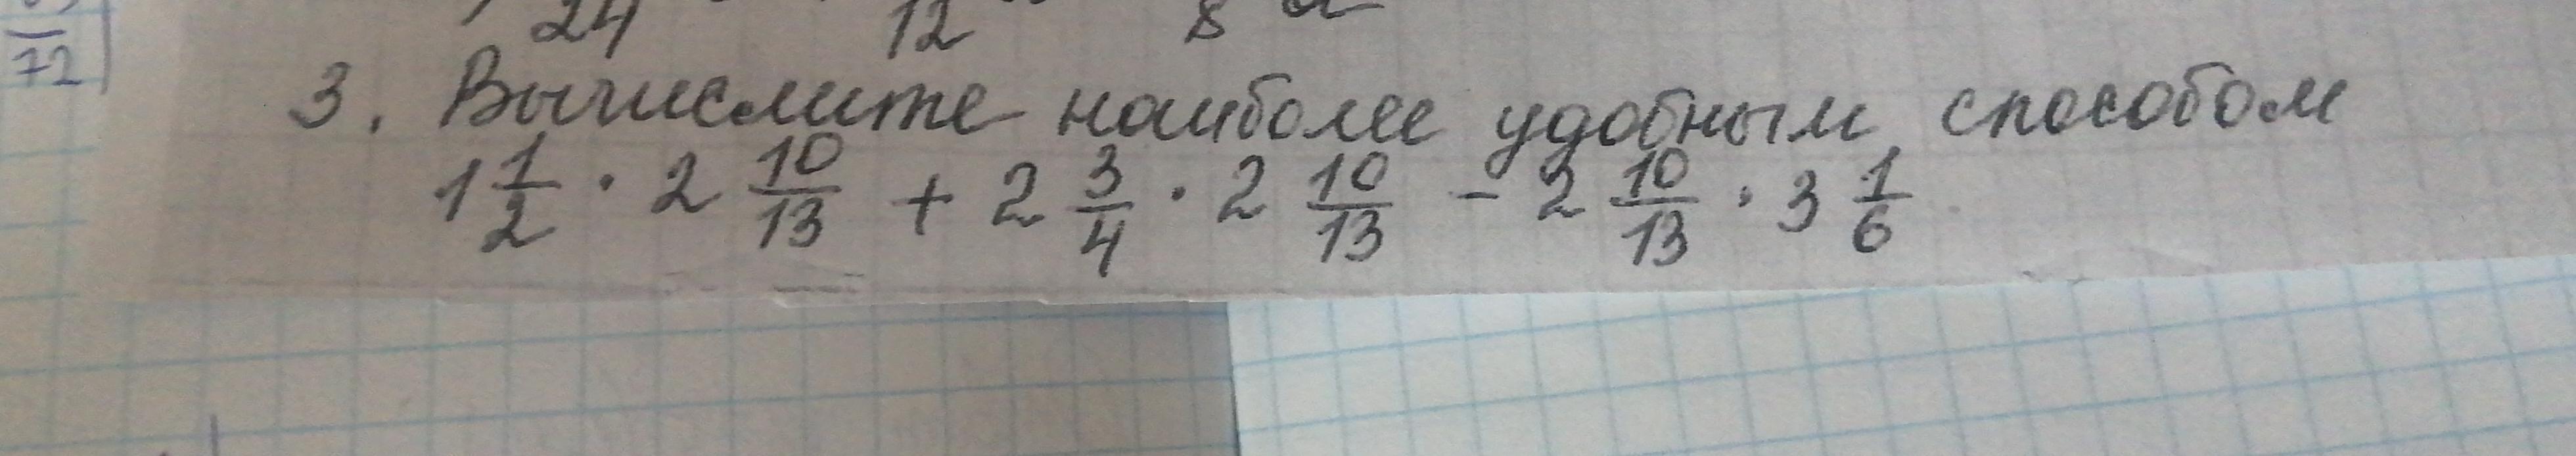 72
24 12 8
3. Вычислите наиболее удобным способом
1 1/2 · 2 10/13 + 2 3/4 · 2 10/13 - 2 10/13 · 3 1/6